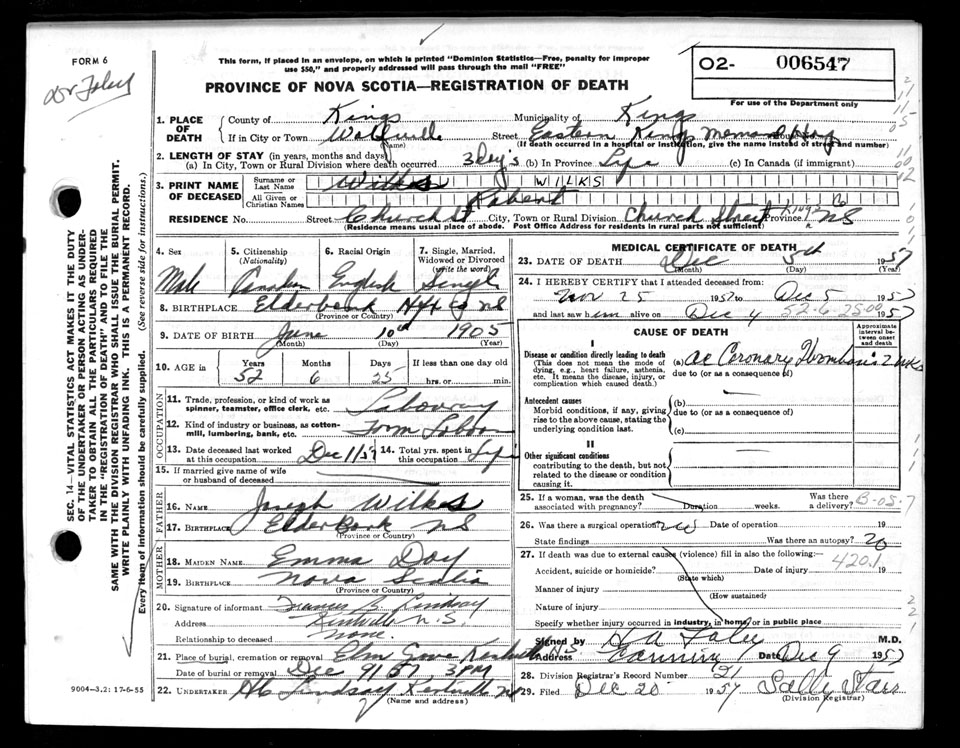 FORM 6
Dr Foley
This form, if placed in an envelope, on which is printed "Dominion Statistics—Free, penalty for improper
use $50," and properly addressed will pass through the mail "FREE"
PROVINCE OF NOVA SCOTIA—REGISTRATION OF DEATH
02- 006547
For use of the Department only
SEC. 14—VITAL STATISTICS ACT MAKES IT THE DUTY
OF THE UNDERTAKER OR PERSON ACTING AS UNDER-
TAKER TO OBTAIN ALL THE PARTICULARS REQUIRED
IN THE "REGISTRATION OF DEATH" AND TO FILE THE
SAME WITH THE DIVISION REGISTRAR WHO SHALL ISSUE THE BURIAL PERMIT.
WRITE PLAINLY WITH UNFADING INK. THIS IS A PERMANENT RECORD.
Every item of information should be carefully supplied. (See reverse side for instructions.)
1. PLACE OF DEATH
County of Kings Municipality of Kings
If in City or Town Wolfville (Name) Street Eastern Kings Memorial Hosp
(If death occurred in a hospital or institution, give the name instead of street and number)
2. LENGTH OF STAY (in years, months and days)
(a) In City, Town or Rural Division where death occurred 3 days (b) In Province Life (c) In Canada (if immigrant)
3. PRINT NAME OF DECEASED
Surname or Last Name Wilkes WILKS
All Given or Christian Names Robert
RESIDENCE No. Street Church St City, Town or Rural Division Church Street Province NS
(Residence means usual place of abode. Post Office Address for residents in rural parts not sufficient)
4. Sex Male
5. Citizenship (Nationality) Canadian
6. Racial Origin English
7. Single, Married, Widowed or Divorced (write the word) Single
8. BIRTHPLACE Elderbank Hfx Co NS
(Province or Country)
9. DATE OF BIRTH June 10th 1905
(Month) (Day) (Year)
10. AGE in Years 52 Months 6 Days 25 If less than one day old hrs. or min.
OCCUPATION
11. Trade, profession, or kind of work as spinner, teamster, office clerk, etc.
12. Kind of industry or business, as cotton-mill, lumbering, bank, etc. Farm
13. Date deceased last worked at this occupation Dec 1/57 14. Total yrs. spent in this occupation Life
15. If married give name of wife or husband of deceased
FATHER
16. NAME Joseph Wilkes
17. BIRTHPLACE Elderbank NS
(Province or Country)
MOTHER
18. MAIDEN NAME Emma Day
19. BIRTHPLACE Nova Scotia
(Province or Country)
20. Signature of informant Francis B. Lindsay
Address Kentville N.S.
Relationship to deceased None.
21. Place of burial, cremation or removal Elm Grove Kentville N.S.
Date of burial or removal Dec 9/57 3PM
22. UNDERTAKER Lindsay Kentville NS
(Name and address)
9004-3.2: 17-6-55
MEDICAL CERTIFICATE OF DEATH
23. DATE OF DEATH Dec 5th 1957
(Month) (Day) (Year)
24. I HEREBY CERTIFY that I attended deceased from:
Nov 25 1957 to Dec 5 1957
and last saw him alive on Dec 4 1957
52-6-25-09
CAUSE OF DEATH
Approximate interval between onset and death
I
Disease or condition directly leading to death
(This does not mean the mode of dying, e.g., heart failure, asthenia, etc. It means the disease, injury, or complication which caused death.)
(a) ac Coronary Thrombosis 2 wks
due to (or as a consequence of)
Antecedent causes
Morbid conditions, if any, giving rise to the above cause, stating the underlying condition last.
(b)
due to (or as a consequence of)
(c)
II
Other significant conditions
contributing to the death, but not related to the disease or condition causing it.
25. If a woman, was the death associated with pregnancy? Duration weeks. Was there a delivery?
B-05-7
26. Was there a surgical operation? no Date of operation 19
State findings Was there an autopsy? no
27. If death was due to external causes (violence) fill in also the following:
420.1
Accident, suicide or homicide? (State which) Date of injury 19
Manner of injury (How sustained)
Nature of injury
Specify whether injury occurred in industry, in home, or in public place
Signed by Foley M.D.
Address Canning Date Dec 9 1957
28. Division Registrar's Record Number 21
29. Filed Dec 20 1957 Sally Starr
(Division Registrar)